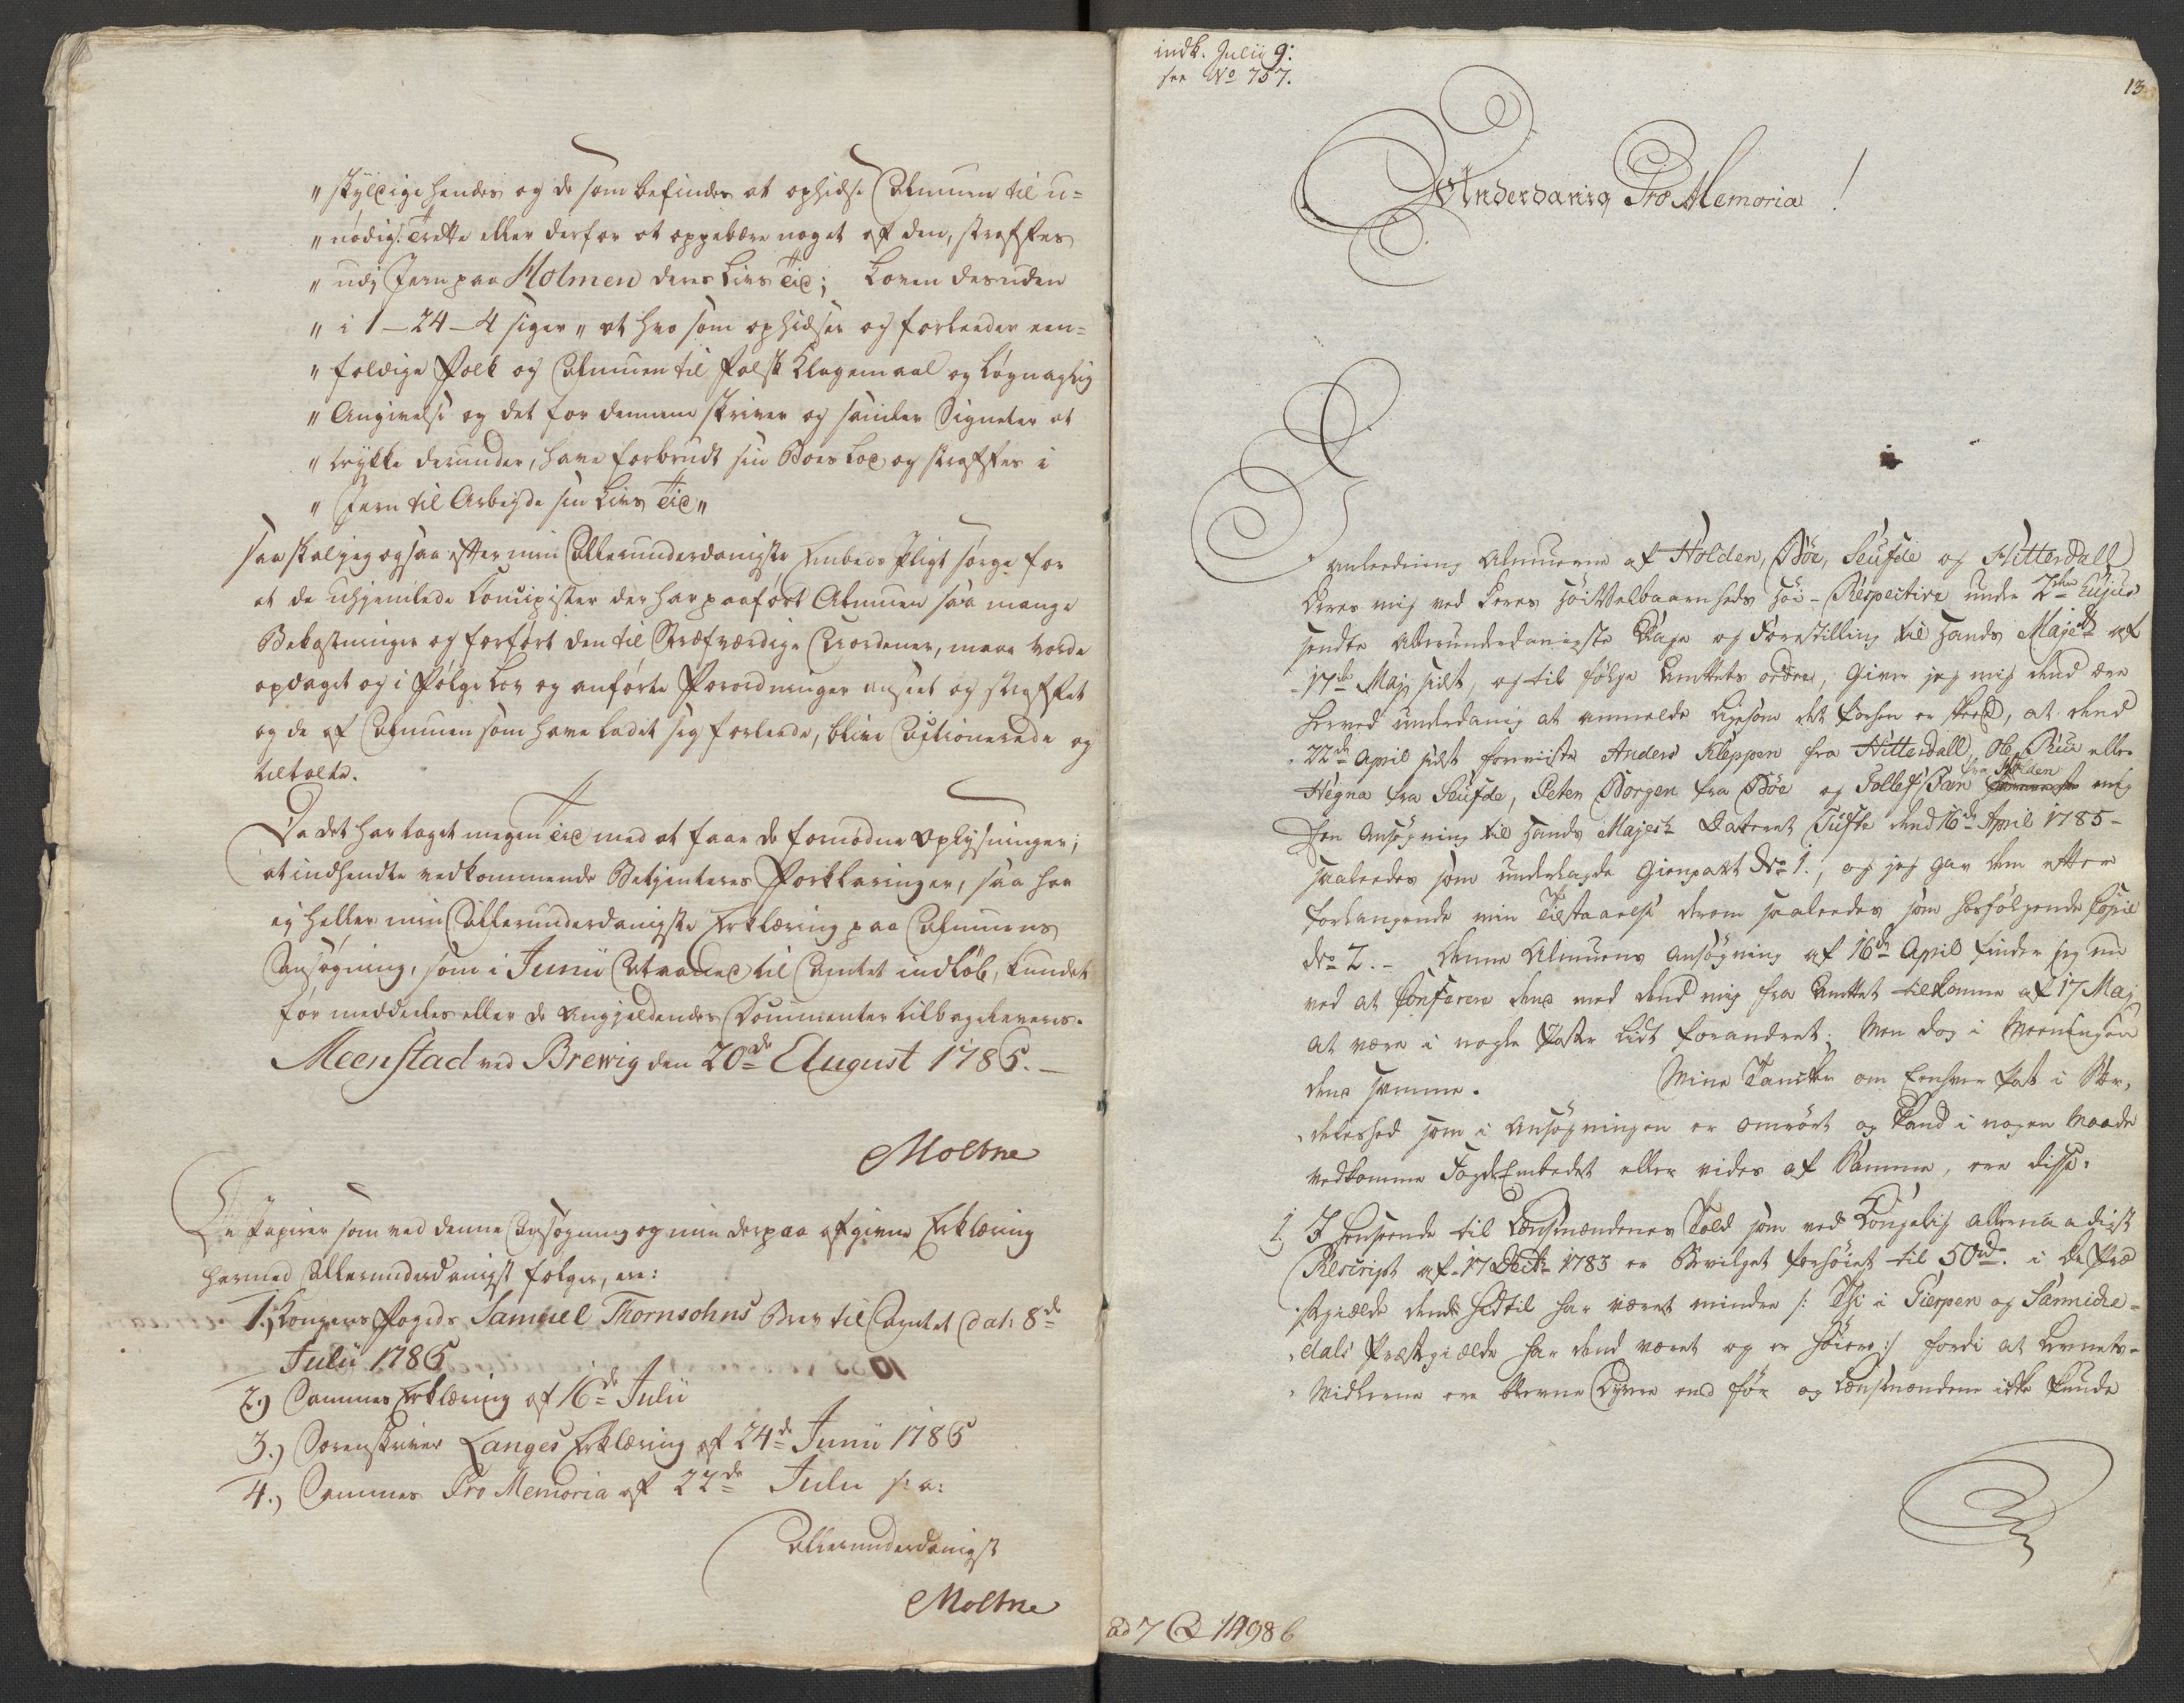 " skyldige hendes og de som befindes at ophidse Almuen til u=
" nødig: Trætte eller derfor at oppebære noget af den, straffes
" udj Jern paa Holmen deres Livs Tid; Loven desuden
" i 1–24–4 siger " at hvo som ophidser og forleeder een=
" foldige Folk og Almuen til falsk Klagemaal og løgnagtig
" Angivelse og det for dennem skriver og samler Signeter at
" trykke derunder, have forbrudt sin Boes Lod og straffes i
" Jern til Arbejde sin Livs Tid "
saa skal jeg ogsaa efter min allerunderdanigste Embeds Pligt sørge for
at de uhjemlede Concipister der har paaført Almuen saa mange
Bekostninger og forført den til Strafværdige Uordener, maae vorde
opdaget og i Følge Lov og anførte Forordninger anseet og straffet
og de af Almuen som have ladet sig forleede, blive actionerede og
tiltalte.
Da det har taget megen Tid med at faae de fornødne Oplysninger;
at indhendte vedkommende Betjenteres Forklaringer, saa har
ej heller min allerunderdanigste Erklæring paa Almuens
Ansøgning, som i Junii Maaned til Amtet indløb, kundet
før meddeeles eller de angjeldendes Documenter tilbageleveres.
Meenstad ved Brewig den 20de August 1785.–
Moltke
De Papirer som ved denne Ansøgning og min derpaa afgivne Erklæring
hermed allerunderdanigst følger, ere:
1.) Kongens Fogeds Samuel Thornsohns Brev til Amtet dat: 8de
Julii 1785
2.) Sammes Erklæring af 16de Julii
3.) Sorenskriver Langes Erklæring af 24de Junii 1785
4.) Sammes Pro Memoria af 22de Julii s: a:
Allerunderdanigst
Moltke
indk. Julii 9:
see No 757.
13
Underdanig Pro Memoria!
I
anleedning Almuerne af Holden, Bøe, Seufde og Hitterdall
Deres mig ved Deres HöiVelbaarenheds Höi-Respective under 2den hujus
sendte Allerunderdanigste Klage og Forestilling til Hands Majest: af
17de Maj sidst, og til følge Amttets ordre, giver jeg mig dend ære
herved underdanig at anmelde ligesom det er skeed, at dend
22de April sidst foreviiste Anders Kleppen fra Hitterdall, Ole Riis eller
fra Holden
Hegna fra Seufde, Peter Borgen fra Bøe og Tollef mig
Een Ansøgning til Hands Majest: Dateret Tufte dend 16de April 1785–
saaleedes som underlagde Gienpart No 1., og jeg gav dem efter
forlangende min Tilstaaelse derom saaleedes som hosfølgende Copie
No 2.– Denne Almuens Ansøgning af 16de April finder jeg nu
ved at Conferere dend med dend mig fra Amttet tilkomne af 17 Maj
at være i nogle Poster lidt forandret; Men dog i Meeningen
dend samme. Mine Tanker om Eenhver Post i Sær-
deleshed som i Ansøgningen er omrørt og kand i nogen Maade
vedkomme FogdeEmbedet eller vides af Samme, ere disse:
1. I henseende til Lænsmændenes Told som ved Kongelig allernaadigst
Rescript af 17 Decbr 1783 er bevilget forhøiet til 50 rd. i de Præ-
stegiælde dend hidtil har været mindre /: Thi i Gierpen og Sannidie-
dals Præstegiælde har dend været og er høiere :/ fordi at Levnets-
Midlerne ere blevne Dyrere end før og Lænsmændene ikke kunde
ad 7 Q 1498 b